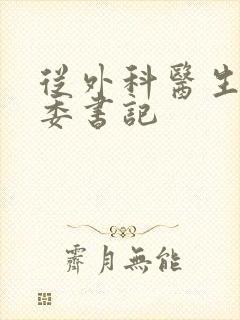 從外科醫生
委書記
霽月無能